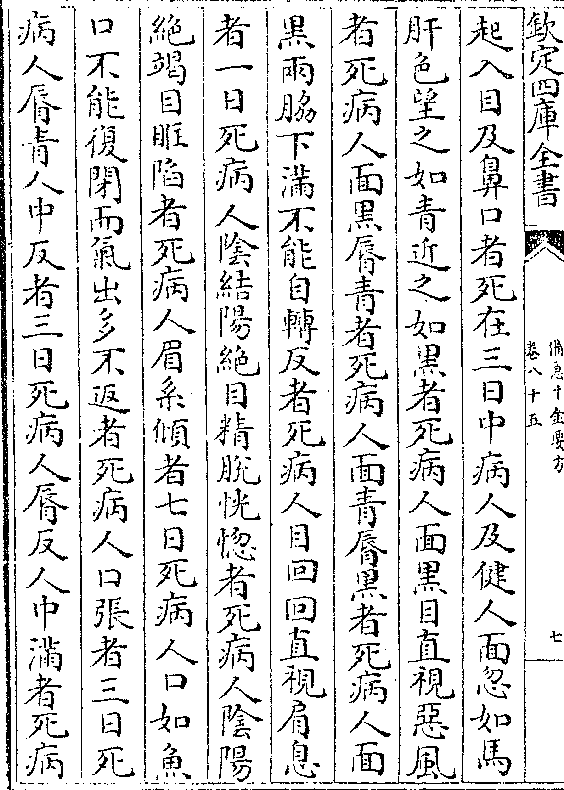 欽定四庫全書
備急千金要方
卷八十五
七
起入目及鼻口者死在三日中病人及健人面忽如馬
肝色望之如青近之如黑者死病人面黑目直視惡風
者死病人面黑脣青者死病人面青脣黑者死病人面
黑兩脇下滿不能自轉反者死病人目回回直視肩息
者一日死病人陰結陽絶目精脫恍惚者死病人陰陽
絶竭目眶陷者死病人眉系傾者七日死病人口如魚
口不能復閉而氣出多不返者死病人口張者三日死
病人脣青人中反者三日死病人脣反人中滿者死病